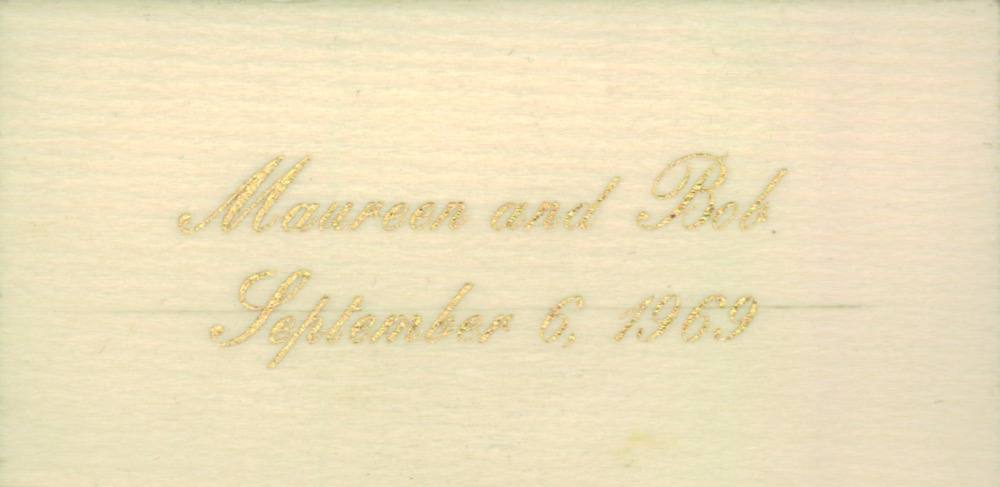 Maureen and Bob
September 6, 1969